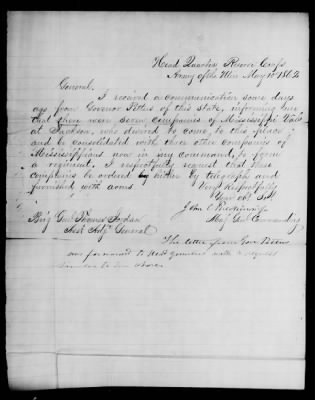 Head Quarters Reserve Corps
Army of the Miss May 10 1862
General.
I received a communication some days
ago from Governor Pettus of this state, informing me
that there were seven companies of Mississippi Vols
at Jackson, who desired to come, to this place
and be consolidated with three other companies of
Mississippians now in my command, to form
a regiment. I respectfully request that these
companies be ordered by either by telegraph and
furnished with arms.
Very Respectfully
Your obt Svt
John C Breckinridge
Brig Genl Thomas Jordan
Maj Genl Commanding
Asst Adjt General
The letter from Gov Pettus
was forward to Head quarters with a request
similar to the above